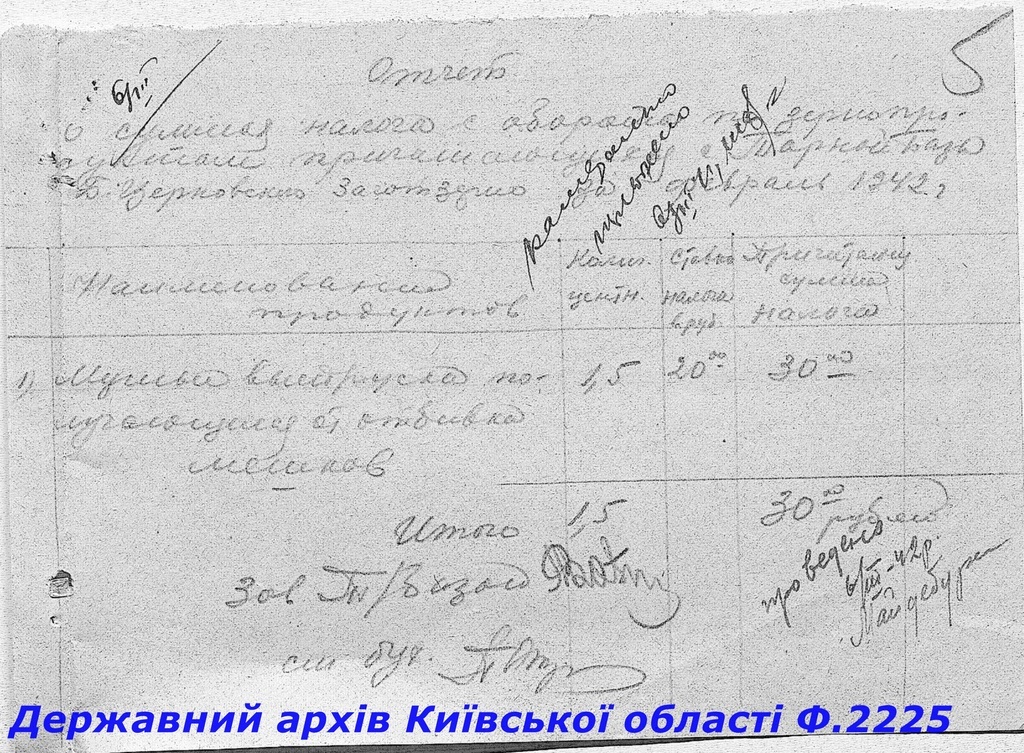 5
6/III
Отчет
о суммах налога с оборота по зернопро-
дуктам причитающихся с Тарной базы
Б. Церковского Заготзерно за февраль 1942 г
6/III
Наименование
продуктов
Колич.
центн.
Ставка
налога
в руб
Причитающ
сумма
налога
1) Мучная вытруска по-
лучающаяся от отбивки
мешков
1,5
20 00
30 00
Итого 1,5 30 00
рублей
Зав Т/базой
ст бух.
проведено
6/III-42 р.
Державний архів Київської області Ф.2225